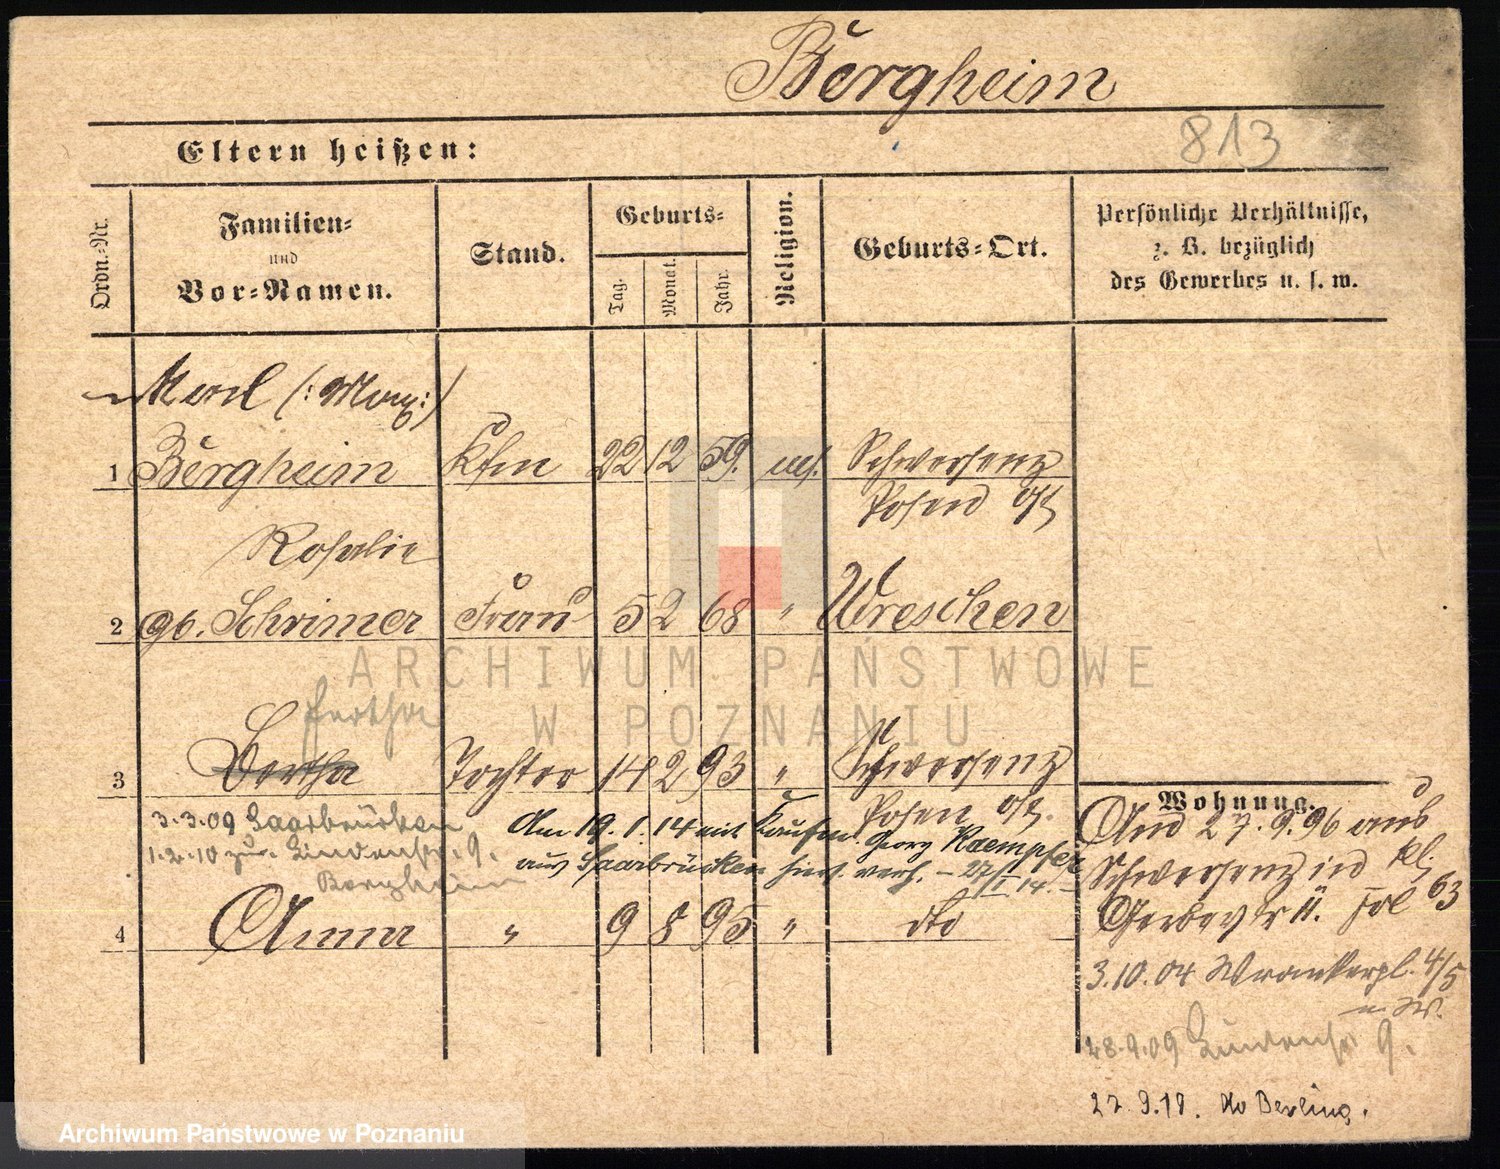 Bergheim
813
Eltern heißen:
Ordn.-Nr.
Familien-
und
Vor-Namen.
Stand.
Geburts-
Tag.
Monat.
Jahr.
Religion.
Geburts-Ort.
Persönliche Verhältnisse,
z. B. bezüglich
des Gewerbes u. s. w.
(: Max :)
1 Bergheim Kfm 22 12 59. mos. Schwersenz
Posen Ost
Rosalie
2 gb. Schrimer Frau 5 2 68 " Wreschen
Hertha
3 Bertha Tochter 14 2 93 " Schwersenz
Posen Ost.
3.3.09 Saarbrücken
1.2.10 zur. Lindenstr. 9.
Bergheim
Am 19.1.14 mit Kaufm. Georg Kaempfer
aus Saarbrücken hier verh. – 27/I 14. –
4 Anna " 9 8 95 " dto
Wohnung.
27.9.96 aus
Schwersenz in Kl.
Gerberstr 11. Fol 63
3.10.04 Wronkerpl. 4/5
m. W.
28.9.09 Lindenstr 9.
27.9.19. Berlin.
ARCHIWUM PAŃSTWOWE
W POZNANIU
Archiwum Państwowe w Poznaniu